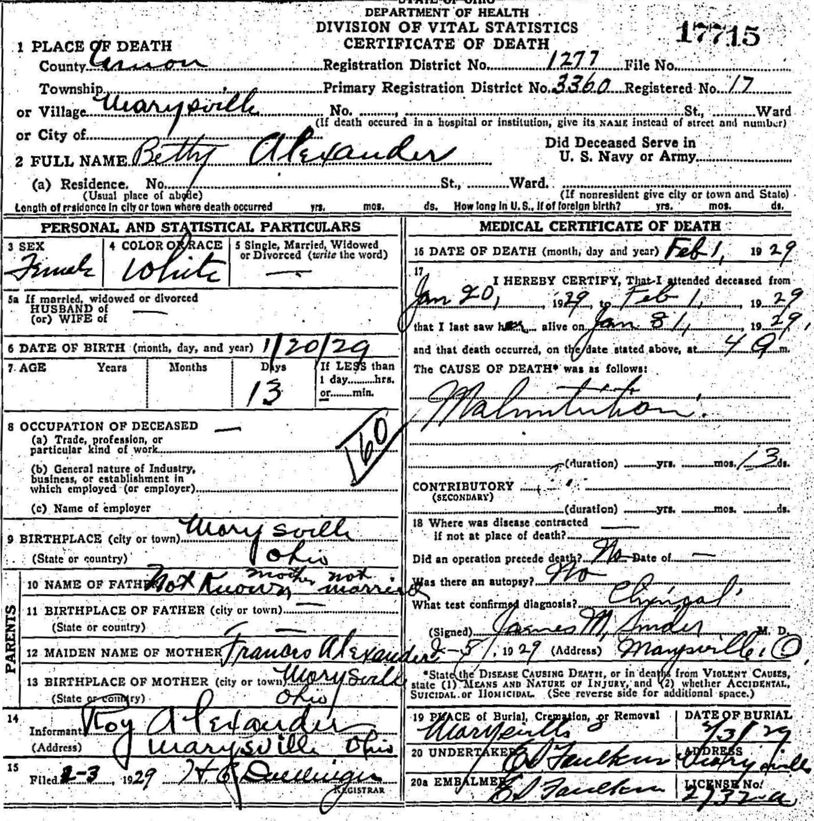 STATE OF OHIO
DEPARTMENT OF HEALTH
DIVISION OF VITAL STATISTICS
CERTIFICATE OF DEATH
17715
1 PLACE OF DEATH
County Union Registration District No. 1277 File No.
Township Primary Registration District No. 3360 Registered No. 17
or Village Marysville No. St., Ward
or City of (If death occured in a hospital or institution, give its NAME instead of street and number)
2 FULL NAME Betty Alexander Did Deceased Serve in U. S. Navy or Army
(a) Residence. No. St., Ward.
(Usual place of abode) (If nonresident give city or town and State)
Length of rsidence in city or town where death occurred yrs. mos. ds. How long in U.S., if of foreign birth? yrs. mos. ds.
PERSONAL AND STATISTICAL PARTICULARS
3 SEX 4 COLOR OR RACE 5 Single, Married, Widowed
or Divorced (write the word)
Female White —
5a If married, widowed or divorced
HUSBAND of —
(or) WIFE of
6 DATE OF BIRTH (month, day, and year) 1/20/29
7 AGE Years Months Days If LESS than
1 day hrs.
13 or min.
8 OCCUPATION OF DECEASED —
(a) Trade, profession, or
particular kind of work
(b) General nature of Industry,
business, or establishment in
which employed (or employer)
(c) Name of employer
160
9 BIRTHPLACE (city or town) Marysville
(State or country) Ohio
PARENTS
10 NAME OF FATHER Not Known mother not married
11 BIRTHPLACE OF FATHER (city or town) —
(State or country) —
12 MAIDEN NAME OF MOTHER Frances Alexander
13 BIRTHPLACE OF MOTHER (city or town) Marysville
(State or country) Ohio
14
Informant Roy Alexander
(Address) Marysville Ohio
15
Filed 2-3, 1929
REGISTRAR
MEDICAL CERTIFICATE OF DEATH
16 DATE OF DEATH (month, day and year) Feb 1, 1929
17
I HEREBY CERTIFY, That I attended deceased from
Jan 20, 1929, Feb 1, 1929
that I last saw her alive on Jan 31, 1929,
and that death occurred, on the date stated above, at 4 a m.
The CAUSE OF DEATH* was as follows:
Malnutrition
(duration) yrs. mos. 13 ds.
CONTRIBUTORY
(SECONDARY)
(duration) yrs. mos. ds.
18 Where was disease contracted
if not at place of death? —
Did an operation precede death? No Date of —
Was there an autopsy? No
What test confirmed diagnosis? Clinical
(Signed) James M. Snider M. D.
1929 (Address) Marysville, O.
*State the DISEASE CAUSING DEATH, or in deaths from VIOLENT CAUSES,
state (1) MEANS AND NATURE OF INJURY, and (2) whether ACCIDENTAL,
SUICIDAL or HOMICIDAL. (See reverse side for additional space.)
19 PLACE of Burial, Cremation, or Removal DATE OF BURIAL
Marysville 2/3/29
20 UNDERTAKER ADDRESS
Faulkner Marysville
20a EMBALMER LICENSE No.
Faulkner 2732-a